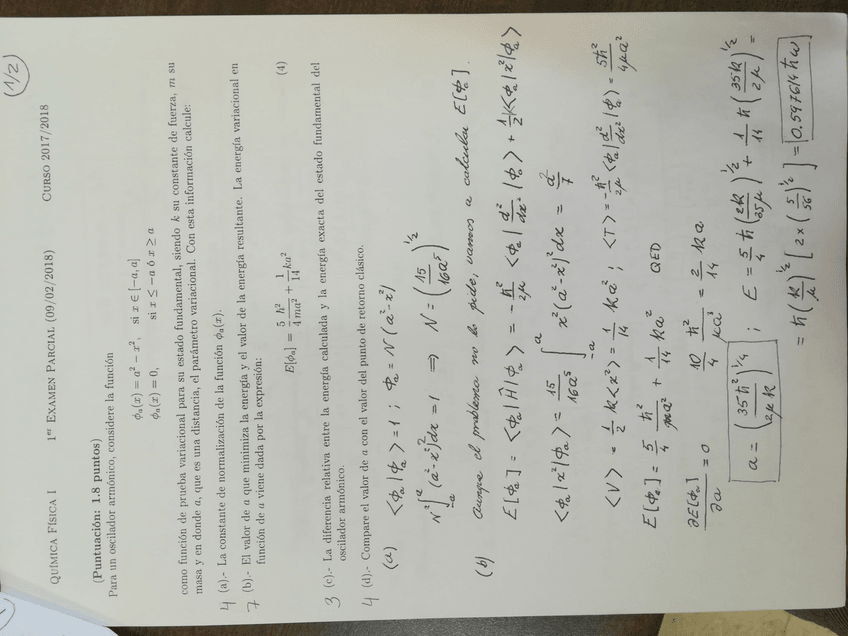 (1/2)
QUÍMICA FÍSICA I 1er EXAMEN PARCIAL (09/02/2018) CURSO 2017/2018
(Puntuación: 1.8 puntos)
Para un oscilador armónico, considere la función
ϕa(x) = a² − x², si x ∈ [−a, a]
ϕa(x) = 0, si x ≤ −a ó x ≥ a
como función de prueba variacional para su estado fundamental, siendo k su constante de fuerza, m su
masa y en donde a, que es una distancia, el parámetro variacional. Con esta información calcule:
4 (a).- La constante de normalización de la función ϕa(x).
7 (b).- El valor de a que minimiza la energía y el valor de la energía resultante. La energía variacional en
función de a viene dada por la expresión:
E[ϕa] = 5/4 ħ²/ma² + 1/14 ka² (4)
3 (c).- La diferencia relativa entre la energía calculada y la energía exacta del estado fundamental del
oscilador armónico.
4 (d).- Compare el valor de a con el valor del punto de retorno clásico.
(a) <ϕa|ϕa> = 1 ; ϕa = N(a²-x²)
N² ∫₋ₐᵃ (a²-x²)² dx = 1 ⇒ N = (15/16a⁵)^1/2
(b) Aunque el problema no lo pide, vamos a calcular E[ϕa].
E[ϕa] = <ϕa|Ĥ|ϕa> = -ħ²/2μ <ϕa|d²/dx²|ϕa> + 1/2 k<ϕa|x²|ϕa>
<ϕa|x²|ϕa> = 15/16a⁵ ∫₋ₐᵃ x²(a²-x²)² dx = a²/7
<V> = 1/2 k<x²> = 1/14 ka² ; <T> = -ħ²/2μ <ϕa|d²/dx²|ϕa> = 5ħ²/4μa²
E[ϕa] = 5/4 ħ²/ma² + 1/14 ka² QED
∂E[ϕa]/∂a = 0 10/4 ħ²/μa³ = 2/14 ka
a = (35ħ²/2μk)^1/4 ; E = 5/4 ħ (2k/35μ)^1/2 + 1/14 ħ (35k/2μ)^1/2 =
= ħ(k/μ)^1/2 [2×(5/56)^1/2] = 0.597614 ħω